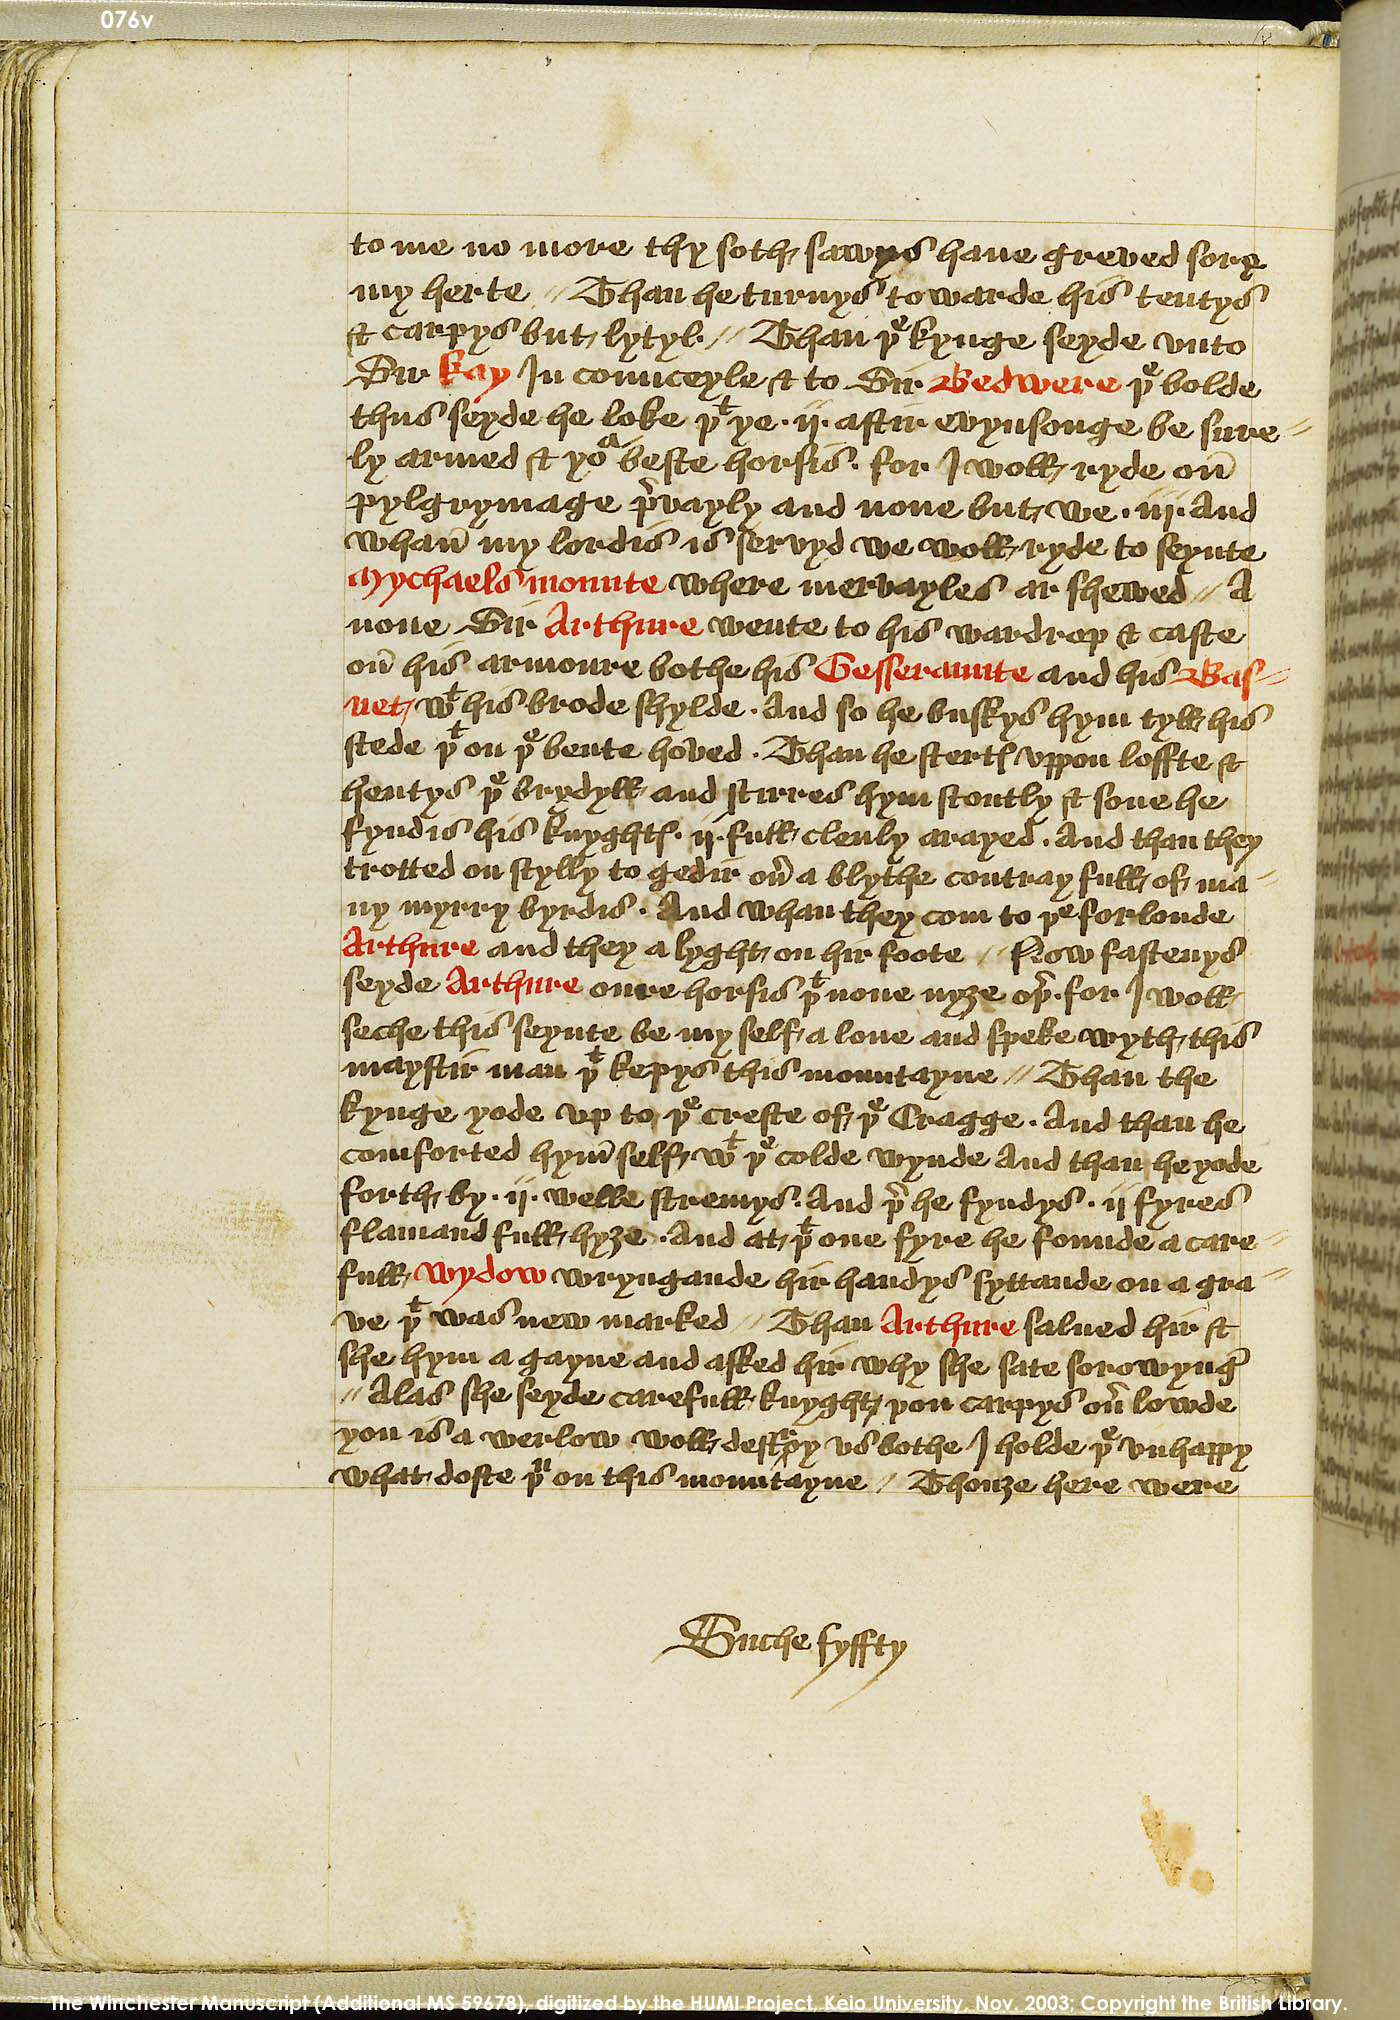 076v
to me no more thy soth sawys haue greved sory
my herte // Than he turnys towarde his tentys
& carpys but lytyl // Than þe kynge seyde vnto
Sir Kay In counceyle & to Sir Bedwere þe bolde
thus seyde he loke þt ye · ij · aftir evynsonge be sure=
ly armed & yor beste horsis · for I woll ryde on
pylgrymage pryvayly and none but we · iij · And
whan my lordis is servyd we woll ryde to seynte
Mychaels mounte where mervayles ar shewed // A
none Sir Arthure wente to his wardrop & caste
on his armoure bothe his Gesseraunte and his Bas=
net wt his brode shylde · And so he buskys hym tyll his
stede þt on þe bente hoved · Than he stertes vppon loffte &
hentys þe brydyll and stirres hym stoutly & sone he
fyndis his knyghtes · ij · full clenly arayed · And than they
trotted on stylly to gedir on a blythe contray full of ma=
ny myrry byrdis · And whan they com to þe forlonde
Arthure and they a lyght on hir foote // Now fastenys
seyde Arthure oure horsis þt none nyȝe oþer · for I woll
seche this seynte be my self a lone and speke wyth this
maystir man þt kepys this mountayne // Than the
kynge yode vp to þe creste of þe Cragge · And than he
comforted hym self wt þe colde wynde And than he yode
forth by · ij · welle stremys · And þer he fyndys · ij fyres
flamand full hyȝe · And at þt one fyre he founde a care=
full wydow wryngande hir handys syttande on a gra=
ve þt was new marked // Than Arthure salued hir &
she hym a gayne and asked hir why she sate sorowyng
// Alas she seyde carefull knyght þou carpys over lowde
yon is a werlow woll destroy vs bothe I holde þe vnhappy
what doste þu on this mountayne // Thouȝe here were
Suche fyffty
The Winchester Manuscript (Additional MS 59678), digitized by the HUMI Project, Keio University, Nov. 2003; Copyright the British Library.